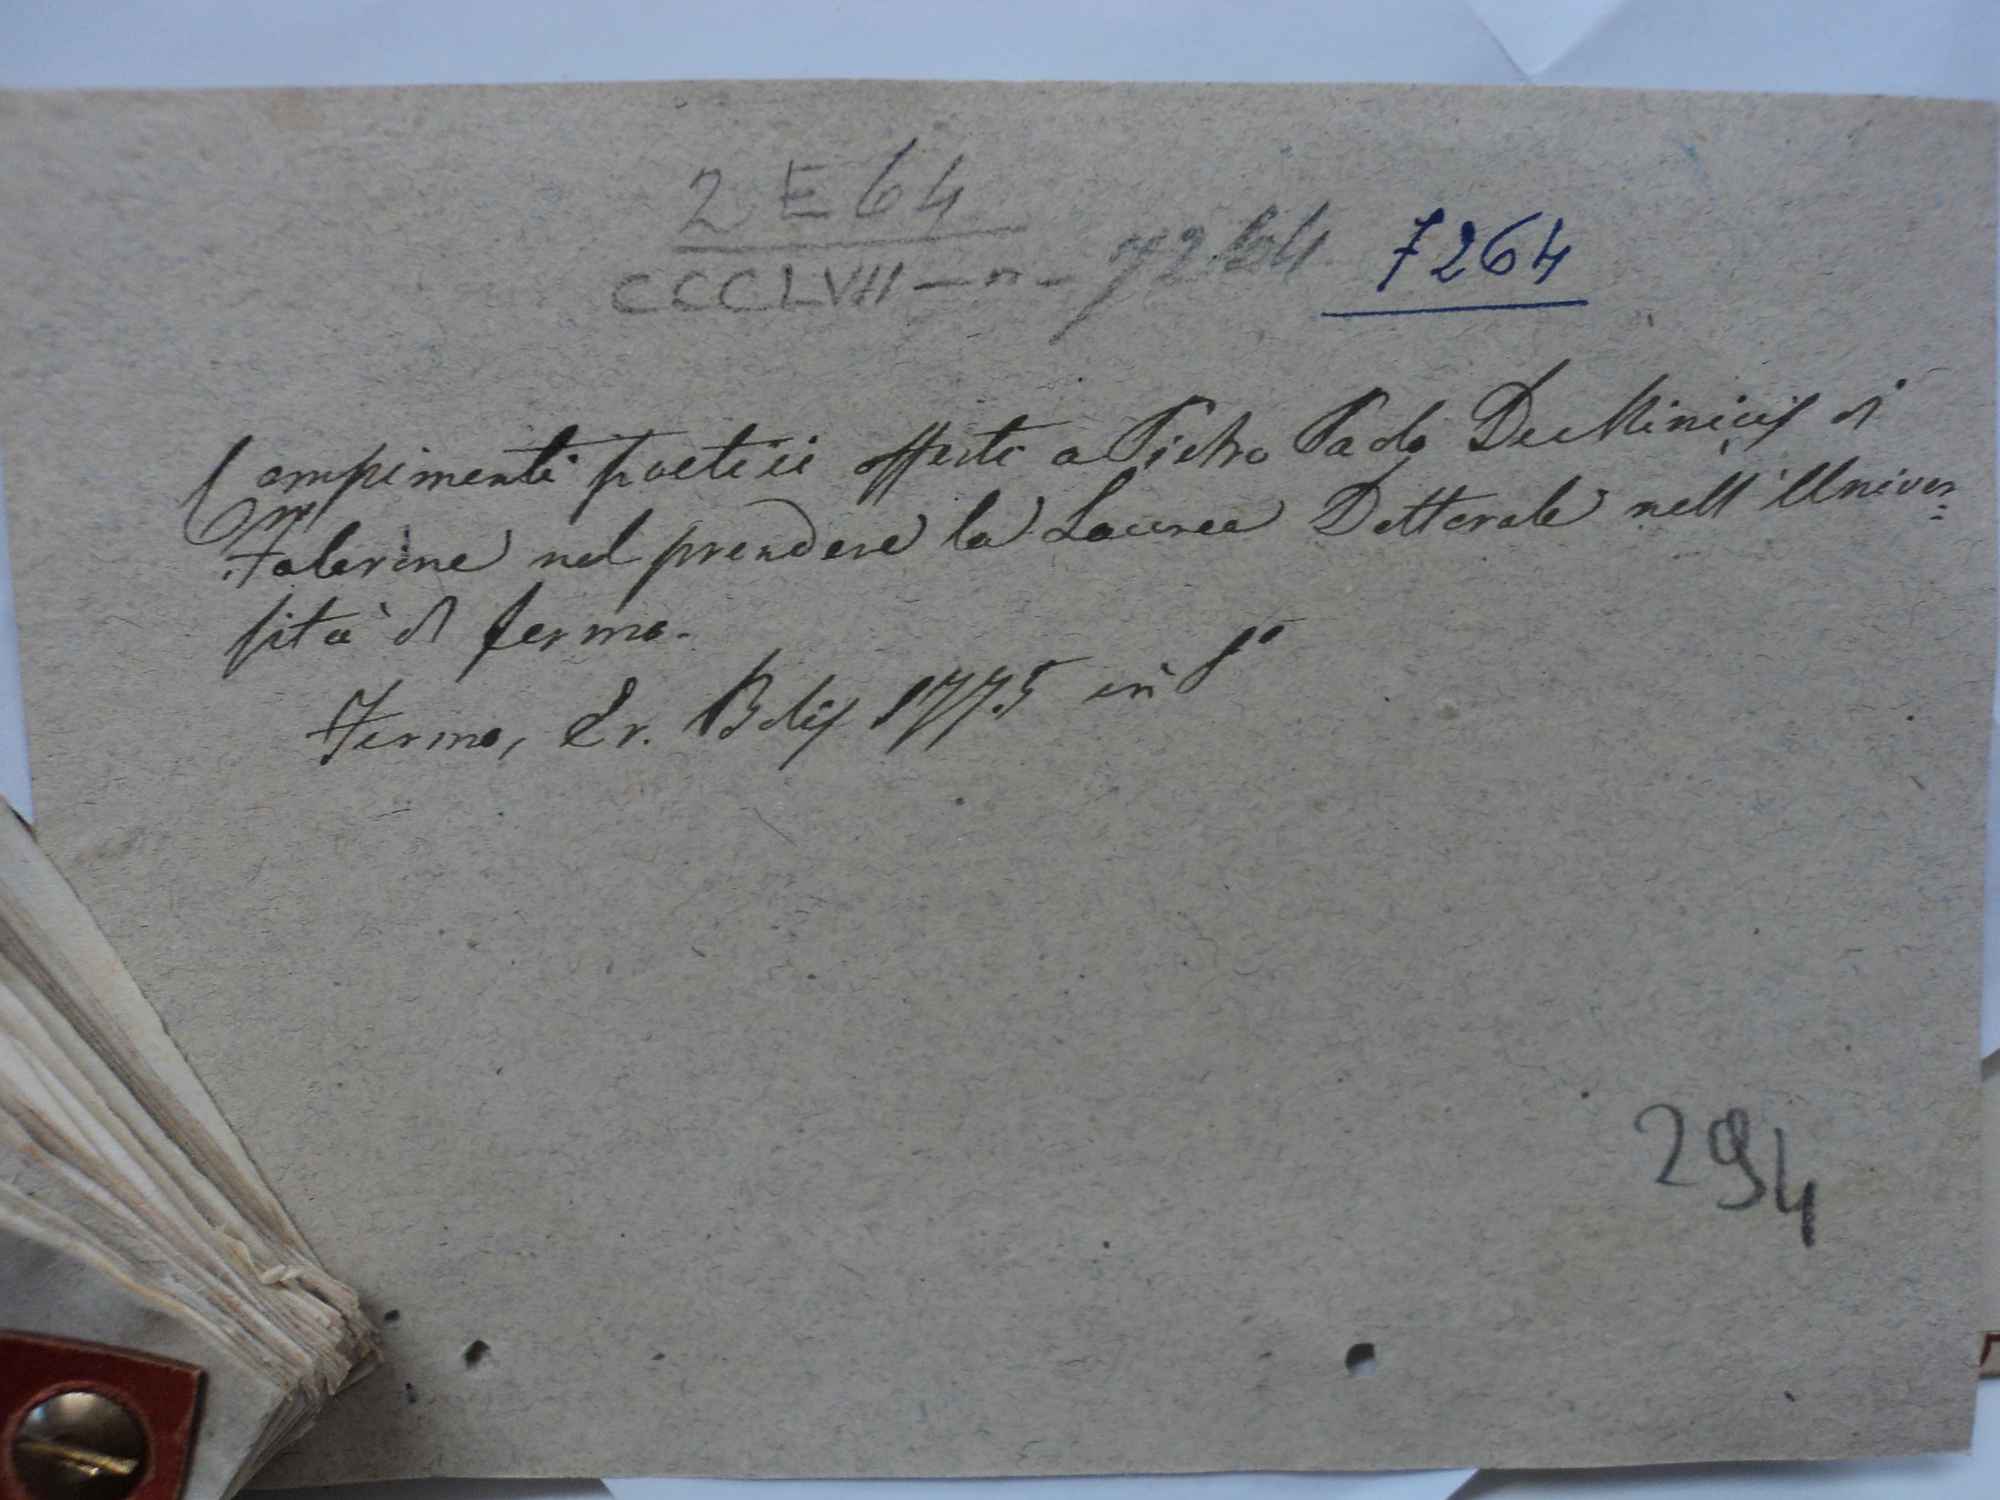 2 E 64
CCCLVII - n - 7264 7264
Compimenti poetici offerti a Pietro Paolo De Minicis di
Falerone nel prendere la Laurea Dottorale nell' Univer=
sità di fermo.
Fermo, Er. Bolis 1775 in 8°
294